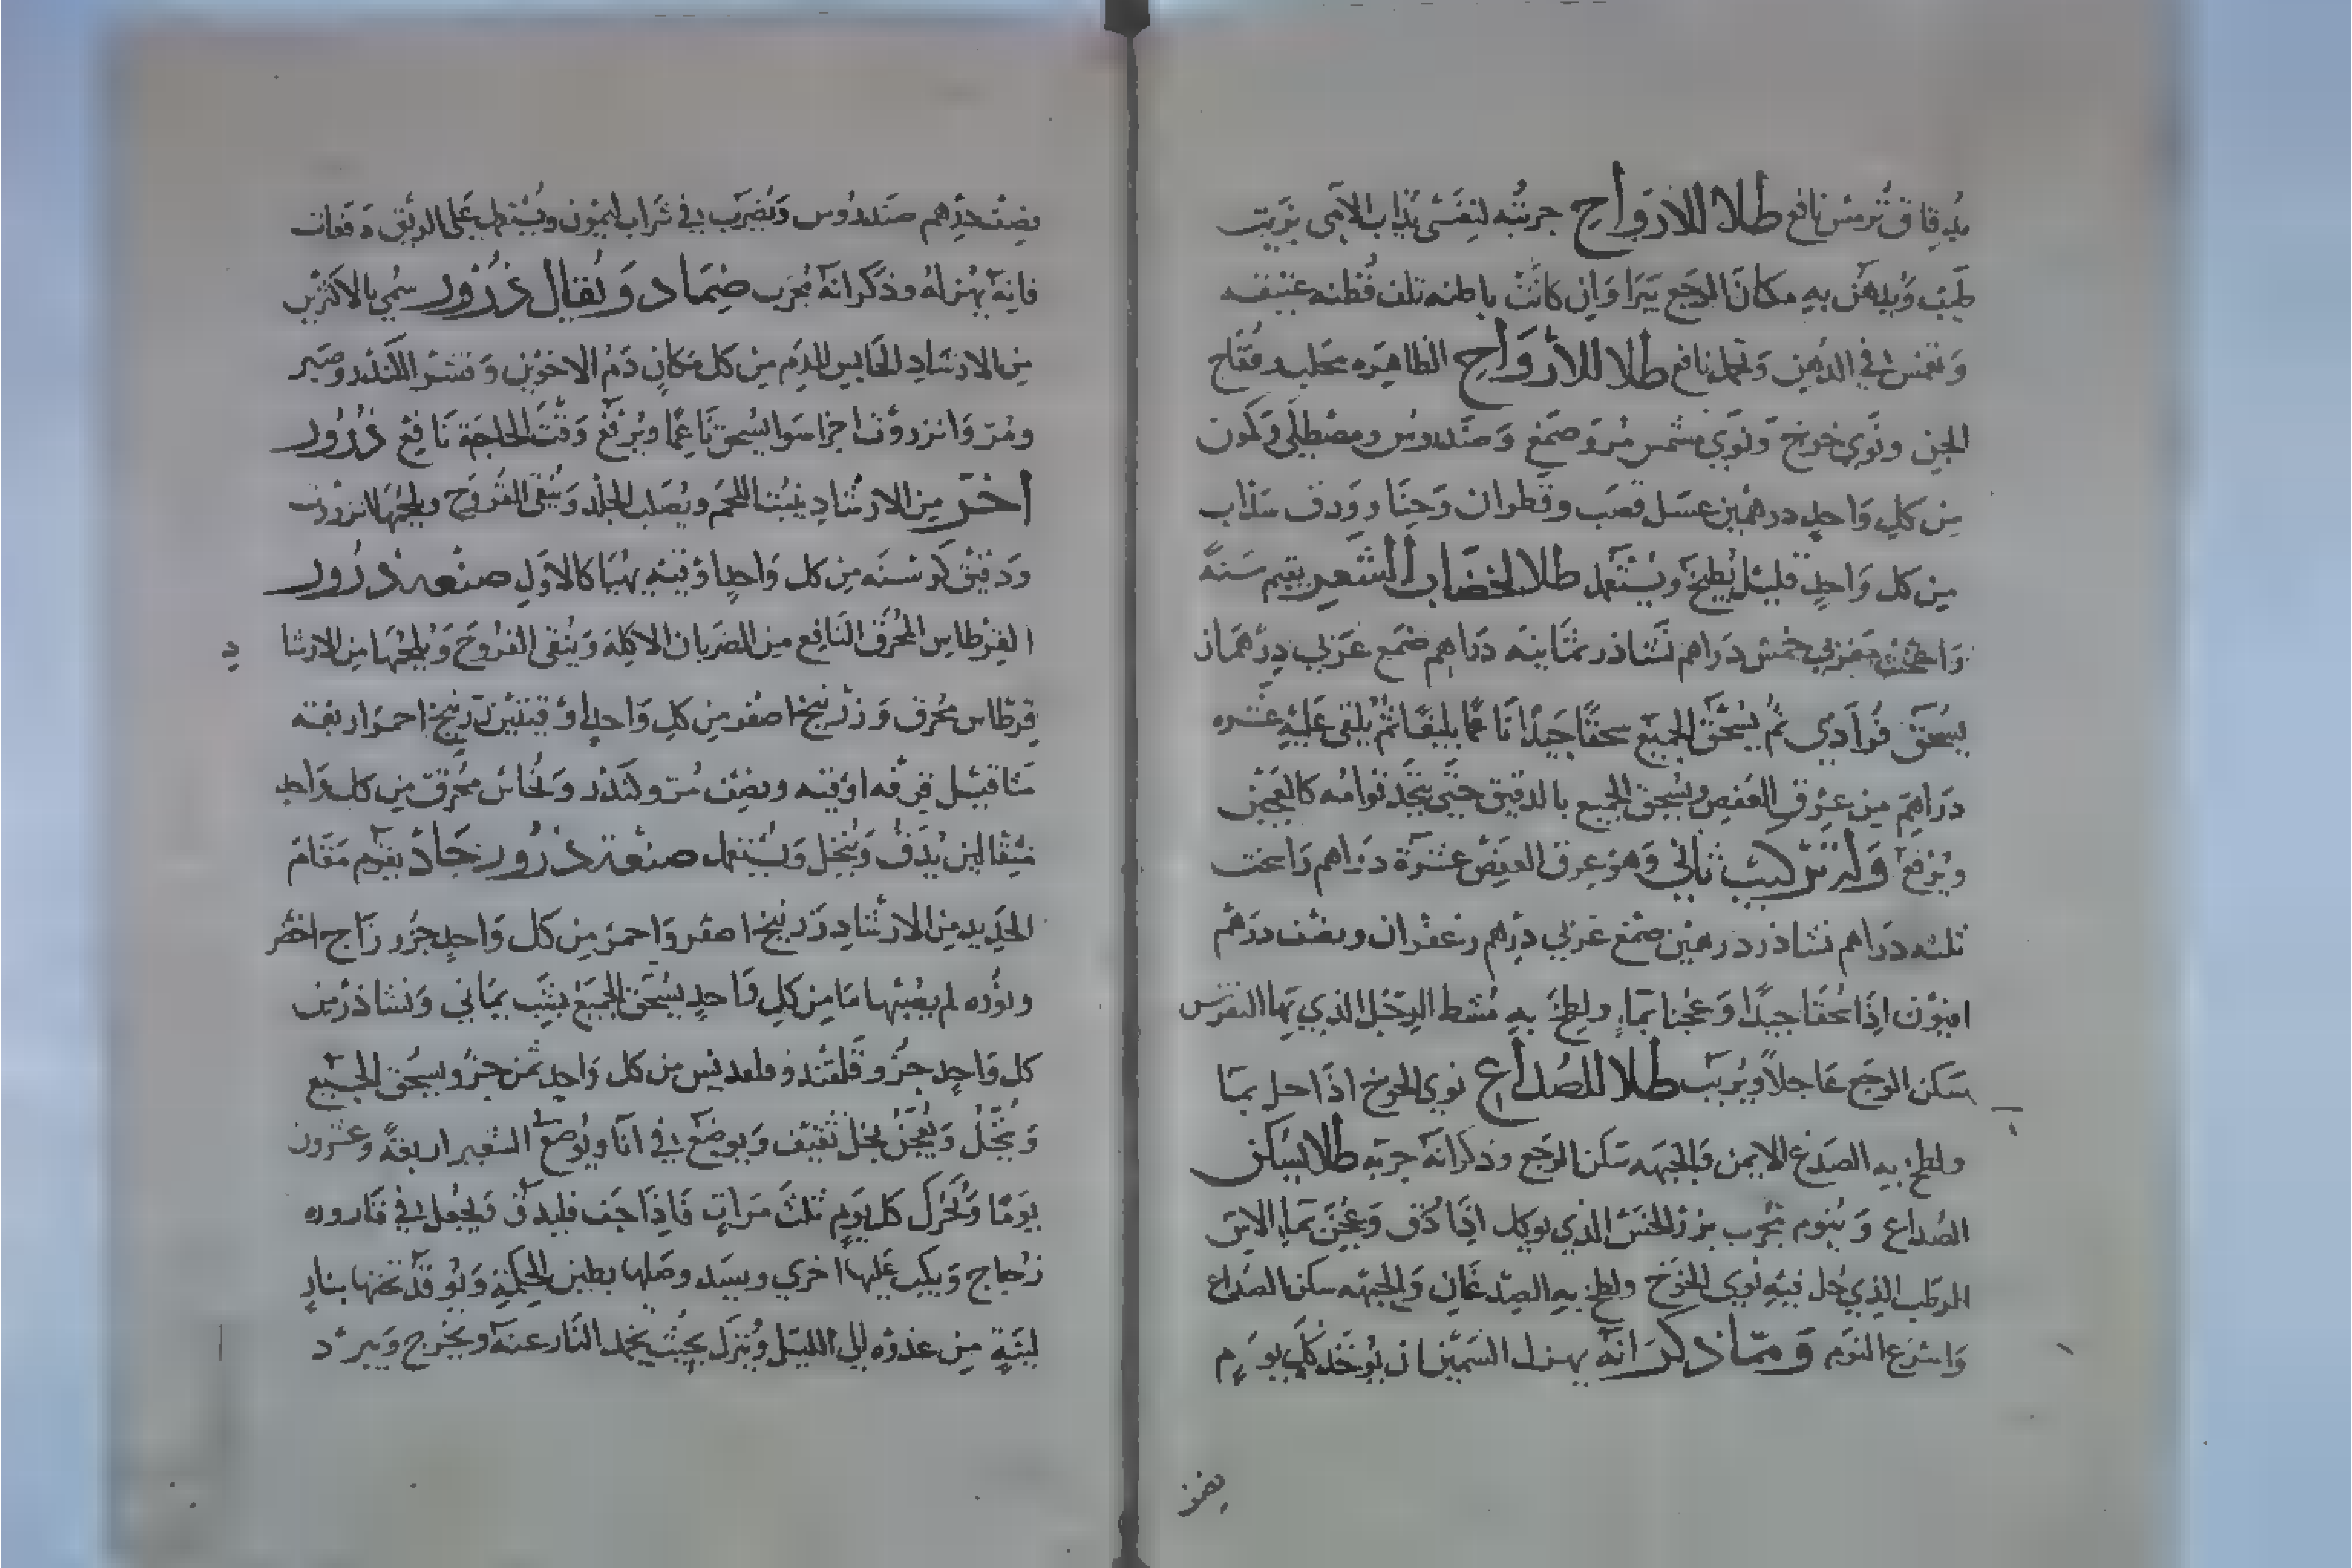 بدقاق ترمس نافع طلا للارواح جربته لنفسي يذاب الامي بزيت
طيب ويدهن به مكان الوجع يبرا وان كانت باطنه تلف قطنه عتيقه
وتغمس في الدهن وتحمل نافع طلا للارواح الظاهره محلب وفقاح
الجبن ونوي خوخ ونوي مشمش مر وصمغ وصندروس ومصطكي وكمون
من كل واحد درهمين عسل قصب وقطران وحنا وورق سذاب
من كل واحد قليل يطبخ ويستعمل طلا لخضاب الشعر يقيم سنة
دراهم نشادر ثمانيه دراهم صمغ عربي درهمان
يسحق فرادي ثم يسحق الجميع سحقا جيدا ناعما بليغا ثم يلقي عليه عشره
دراهم من عرق العفص ويسحق الجميع بالدقيق حتي يتخذ قوامه كالعجين
ويرفع وله تركيب ثاني وهو عرق العفص عشرة دراهم راسخت
ثلثه دراهم نشادر درهمين صمغ عربي درهم زعفران ونصف درهم
افيون اذا سحقا جيدا وعجنا بما ولطخ به مشط الرجل الذي بها النقرس
سكن الوجع عاجلا ويريب طلا للصداع نوي الخوخ اذا حل بما
ولطخ به الصدغ الايمن والجبهه سكن الوجع وذكر انه جربه طلا يسكن
الصداع وينوم مجرب بزر الخس الذي يوكل اذا دق وعجن بما الاس
الرطب الذي حل فيه نوي الخوخ ولطخ به الصدغان والجبهه سكن الصداع
واسرع النوم ومما ذكر انه يهزل السمين ان يوخذ كل يوم
نصف درهم صندروس ويضرب في شراب ليمون ويستعمل علي الريق دفعات
فانه يهزله وذكر انه مجرب ضماد ويقال ذرور سمي بالاكثرين
من الارشاد الحابس للدم من كل مكان دم الاخوين وقشر الكندر وصبر
ومر وانزروت اجزا سوا يسحق ناعما ويرفع وقت الحاجة نافع ذرور
اخر من الارشاد ينبت اللحم ويصلب الجلد وينقي القروح ويلحمها انزروت
ودقيق كرسنه من كل واحد اوقيه يهيا كالاول صنعه ذرور
القرطاس المحرق النافع من الضربان الاكلة وينقي القروح ويلحمها من الارشا د
قرطاس محرق وزرنيخ اصفر من كل واحد اوقيتين زرنيخ احمر اربعة
مثاقيل قرفه اوقيه ونصف مر وكندر ونحاس محرق من كل واحد
مثقالين يدق وينخل ويستعمل صنعة ذرور حاد يقوم مقام
الحديد من الارشاد زرنيخ اصفر واحمر من كل واحد جزو زاج اخضر
ونوره لم يصبها ما من كل واحد يسحق الجميع بشب يماني ونشادر من
كل واحد جزو قلقند وقلقديس من كل واحد ثمن جزو يسحق الجميع
وينخل ويعجن بخل ثقيف ويوضع في انا ويوضع الشعير اربعة وعشرون
يوما ويحرك كل يوم ثلث مرات فاذا جف فليدق ويجعل في قاروره
زجاج ويكب عليها اخري ويسد وصلها بطين الحكمة ويوقد تحتها بنار
لينة من غدوه الي الليل وينزل بحيث يخمد النار عنه ويخرج ويبرد